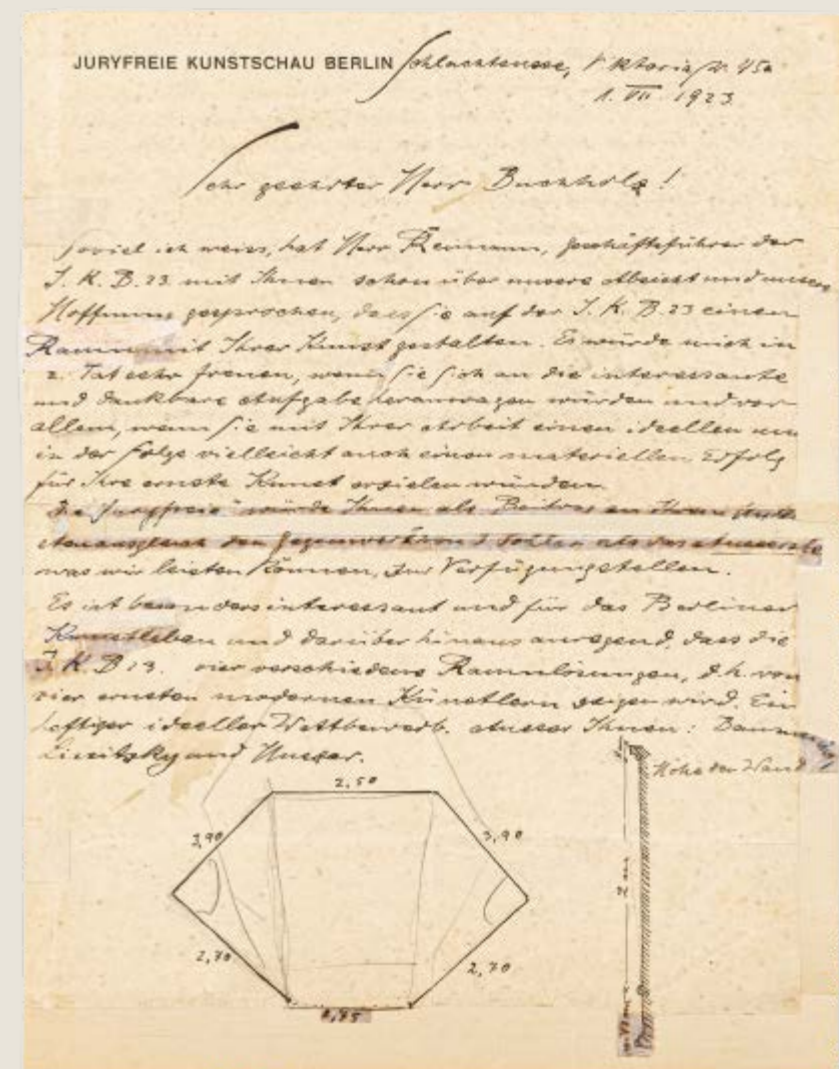 JURYFREIE KUNSTSCHAU BERLIN Schlachtensee, Viktoriastr. 45a
1. VII. 1923
Sehr geehrter Herr Buchholz!
Soviel ich weiss, hat Herr Reimann, Geschäftsführer der
J. K. B. 23 mit Ihnen schon über unsere Absicht und unsere
Hoffnung gesprochen, dass Sie auf der J. K. B. 23 einen
Raum mit Ihrer Kunst gestalten. Es würde mich in
d. Tat sehr freuen, wenn Sie sich an die interessante
und dankbare Aufgabe heranwagen würden und vor
allem, wenn Sie mit Ihrer Arbeit einen ideellen und
in der Folge vielleicht auch einen materiellen Erfolg
für Ihre ernste Kunst erzielen würden.
Die "Juryfreie" würde Ihnen als Beitrag an Ihren
den Gegenwert von Dollar als das Äusserste
was wir leisten können, zur Verfügung stellen.
Es ist besonders interessant und für das Berliner
Kunstleben und darüber hinaus anregend, dass die
J. K. B 23. vier verschiedene Raumlösungen, d. h. von
vier ernsten modernen Künstlern zeigen wird. Ein
heftiger ideeller Wettbewerb. Ausser Ihnen:
Lissitzky und Huszar.
Höhe der Wand
2,50
3,90
3,90
2,70
2,70
0,95